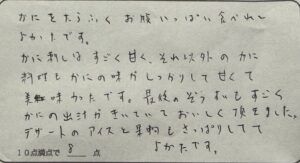 かにをたらふく お腹いっぱい食べれて
よかったです。
かに刺しは すごく甘く、それ以外の かに
料理も かにの味が しっかりして 甘くて
美味かったです。最後の ぞうすいも すごく
かにの出汁が きいていて おいしく 頂きました。
デザートの アイスと 果物も さっぱりしてて
よかったです。
10点満点で 8 点